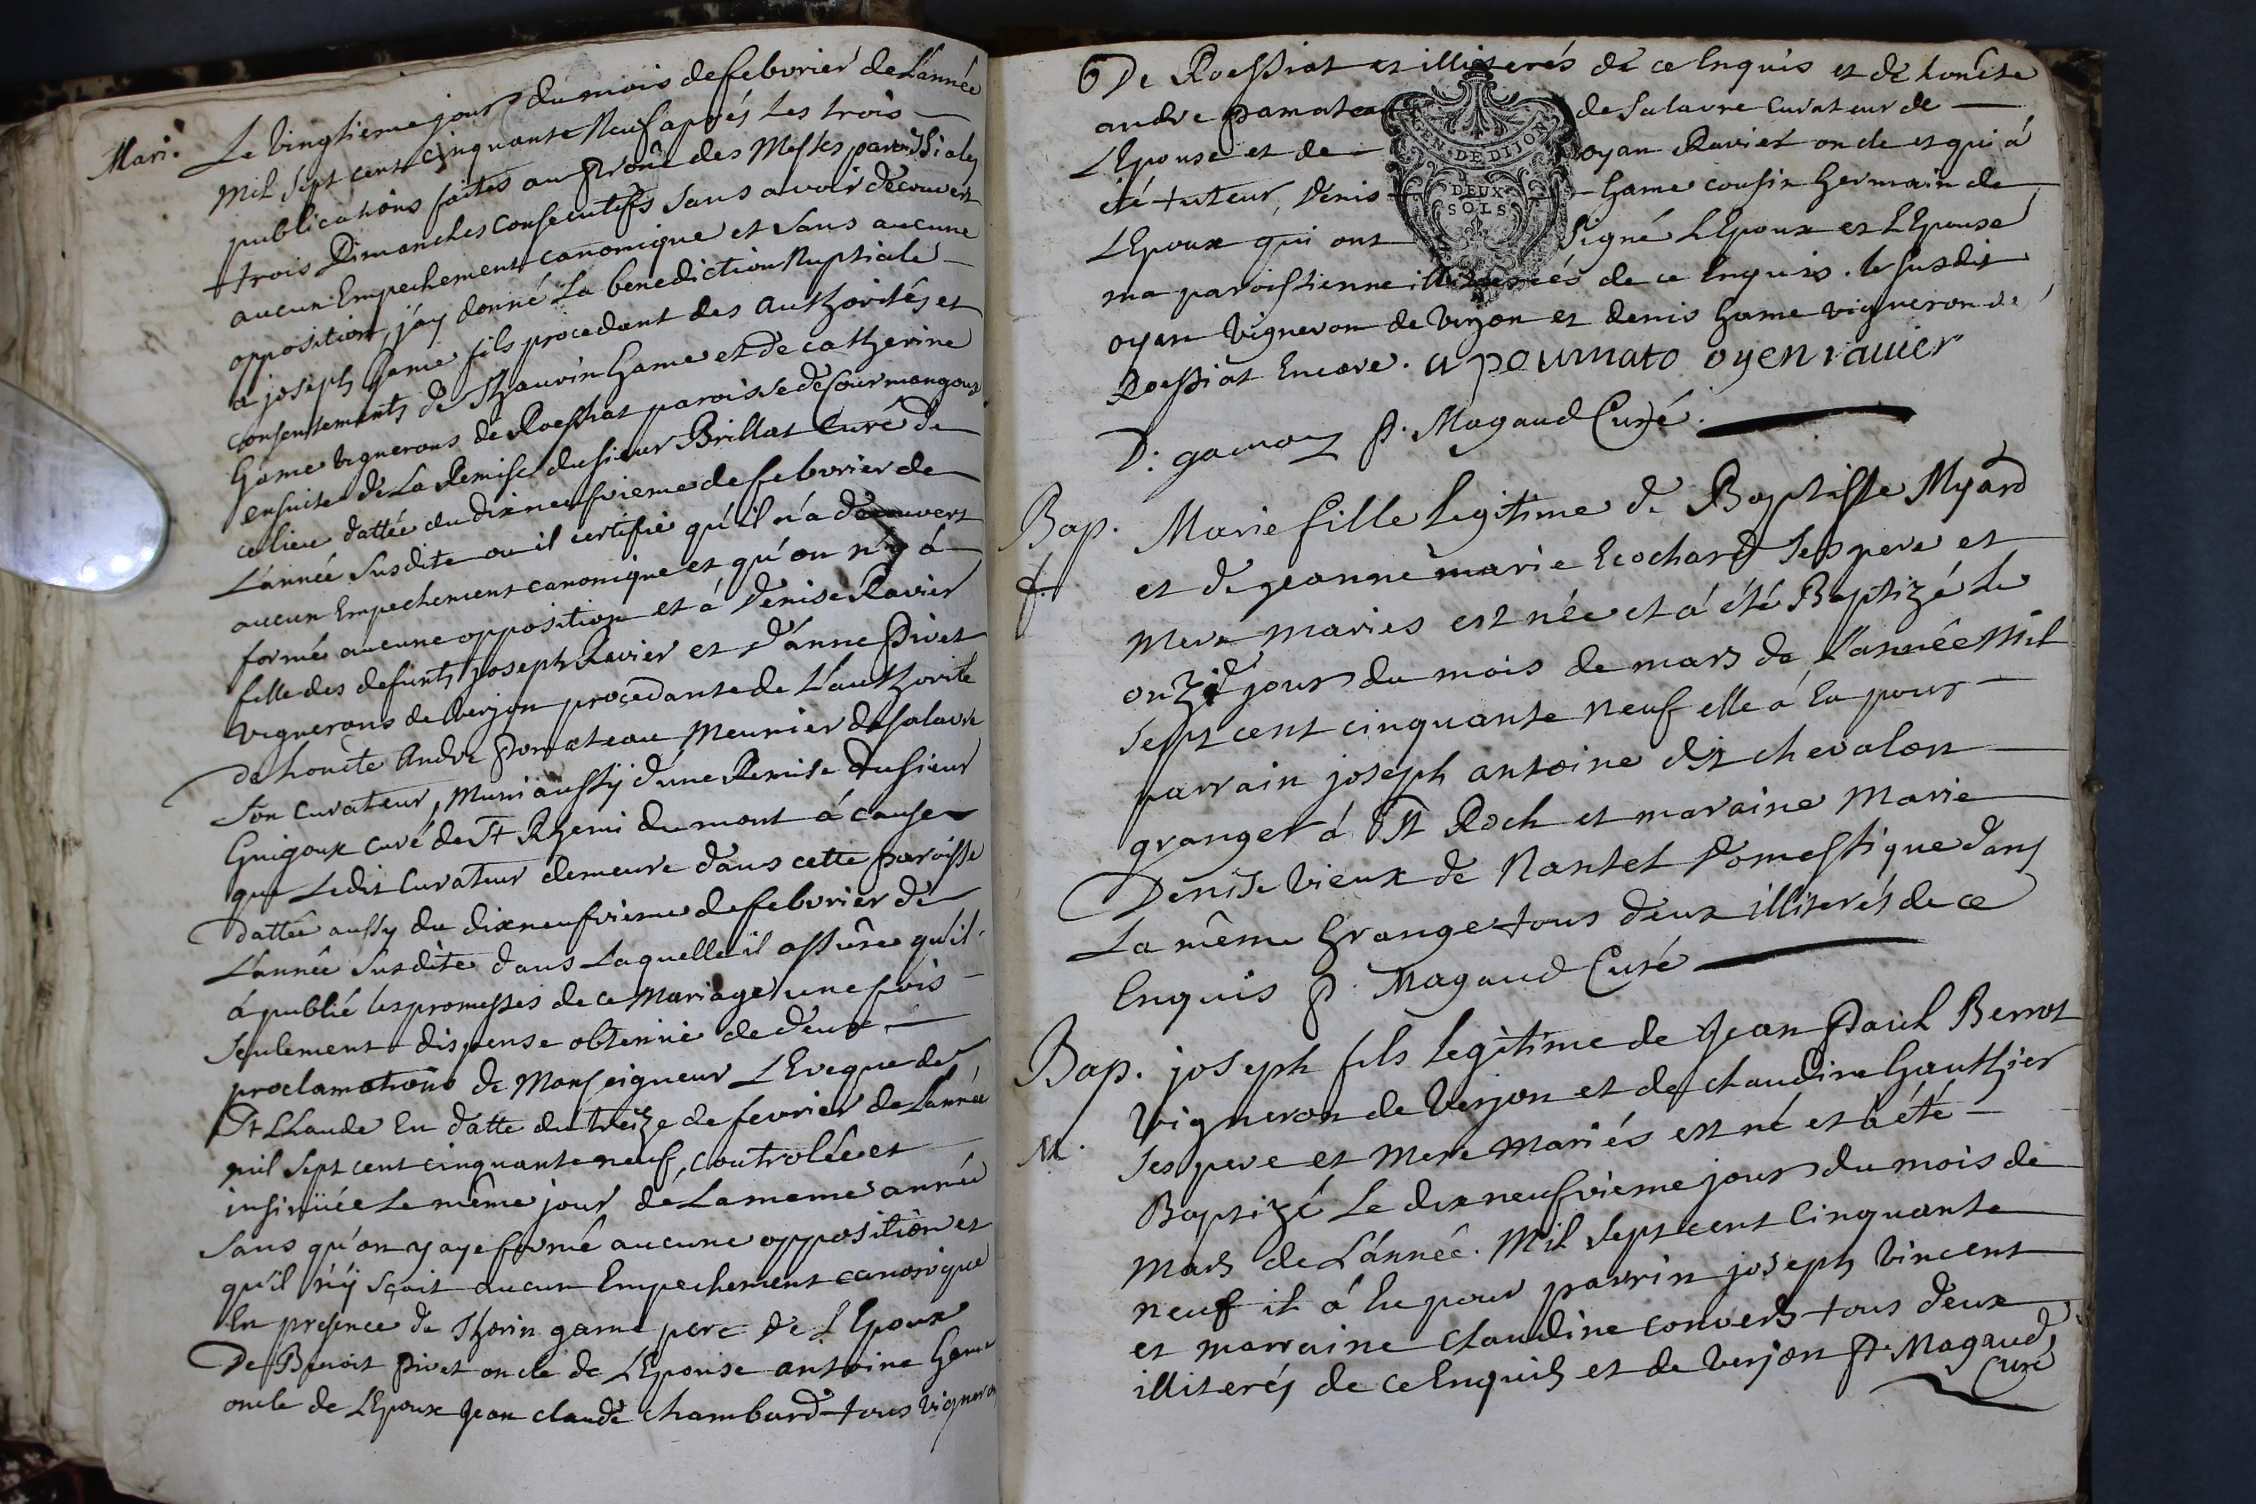 Mari. Le vingtieme jour du mois de febvrier de L'année
mil sept cent cinquante neuf aprés Les trois
publications faites au Prône des Messes paroissiales
trois Dimanches Consecutifs sans avoir decouvert
aucun Empechement canonique et sans aucune
opposition, j'ay donné La benediction Nuptiale
a joseph Game fils procedant des authorités et
consentements de Thaurin Game et de catherine
Game vignerons de Roessiat paroisse de Courmangoux
ensuite de La Remise du sieur Brillat Curé du
ce lieu dattée du dixneufvieme de febvrier de
L'année susdite ou il certifie qu'il n'a decouvert
aucun Empechement canonique et qu'on n'y á
formé aucune opposition et á Denise Ravier
fille des defunts joseph Ravier et d'anne Pivet
vignerons de verjon procedante de L'authorité
de honête André Pomateau Meunier de Salavre
son curateur, Muni aussÿ d'une Remise du sieur
Guigoux curé de St Rhemi du mont á cause
que Ledit Curateur demeure dans cette paroisse
dattée aussy du dixneufvieme de febvrier de
L'année susdite dans Laquelle il assûre qu'il
á publié les promesses de ce Mariage une fois
seulement dispense obtenüe de deux
proclamations de Monseigneur L'Eveque de
St Claude En datte du treize de fevrier de L'année
mil sept cent cinquante neuf, controlée et
insinüée Le même jour de La meme année
sans qu'on y aye formé aucune opposition et
qu'il n'ÿ sçait aucun Empechement canonique
En presence de Thorin game pere de L'Epoux
De Benoit Pivet oncle de L'Epouse antoine Game
oncle de L'Epoux jean claude Chambard tous vignerons
6 De Roessiat et illiterés de ce Enquis et de honête
andre pamatea de Salavre Curateur de
L'Epouse et de oyan Ravier oncle et qui á
été tuteur, Denis Game cousin Germain de
L'Epoux qui ont signé L'Epoux et L'Epouse
ma paroissienne illiterés de ce Enquis. le susdit
oyan vigneron de verjon et denis Game vigneron de
Roessiat Encore. a poumato oyen rauier
D: gamoz P. Magaud Curé.
GEN. DE DIJON
DEUX
SOLS
Bap. Marie fille legitime de Baptiste Myard
f. et de jeanne marie Ecochard ses pere et
Mere mariés est née et á été Baptizé le
onzie jour du mois de mars de L'année Mil
sept cent cinquante neuf elle á Eu pour
parrain joseph antoine dit chevalon
granger á St Roch et maraine Marie
Denise vieux de Nantel domestique dans
La même Grange tous deux illiterés de ce
Enquis P. Magaud Curé
Bap. joseph fils legitime de jean Paul Berrot
vigneron de verjon et de claudine Gauthier
M. ses pere et Mere Mariés est né et á été
Baptizé Le dixneufvieme jour du mois de
Mars de L'année. Mil sept cent Cinquante
neuf il á Eu pour parrin joseph Vincent
et marraine claudine convers tous deux
illiterés de ce Enquis et de verjon P. Magaud
Curé